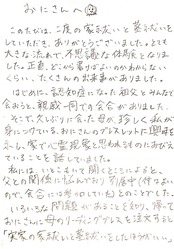 おにさんへ
このたびは、二度の家系祓いと墓系祓いを
していただき、ありがとうございました。とても
大きな流れで、不思議な体験となりま
した。正直、どこから書けばよいかわからない
くらい、たくさんの出来事がありました。
はじめに、認知症になった祖父とみんなで
会おうと、親戚一同での会合がありました。
そこで、久しぶりに会った母が、珍しく私が
身につけている、おにさんのブレスレットに興味を
示し、家で心霊現象と思われるものにおびえ
ていることを話していました。
私には、いとこがいて聞くところによると、
父との関係に悩んでおり(別居中で許せない
ので、会合には来ていない)とのことでした。
いろいろな問題があることを知り、帰って
おにさんに、母のリーディングブレスを注文すると
「実家の家系祓いと墓系祓いをしたほうがいい。